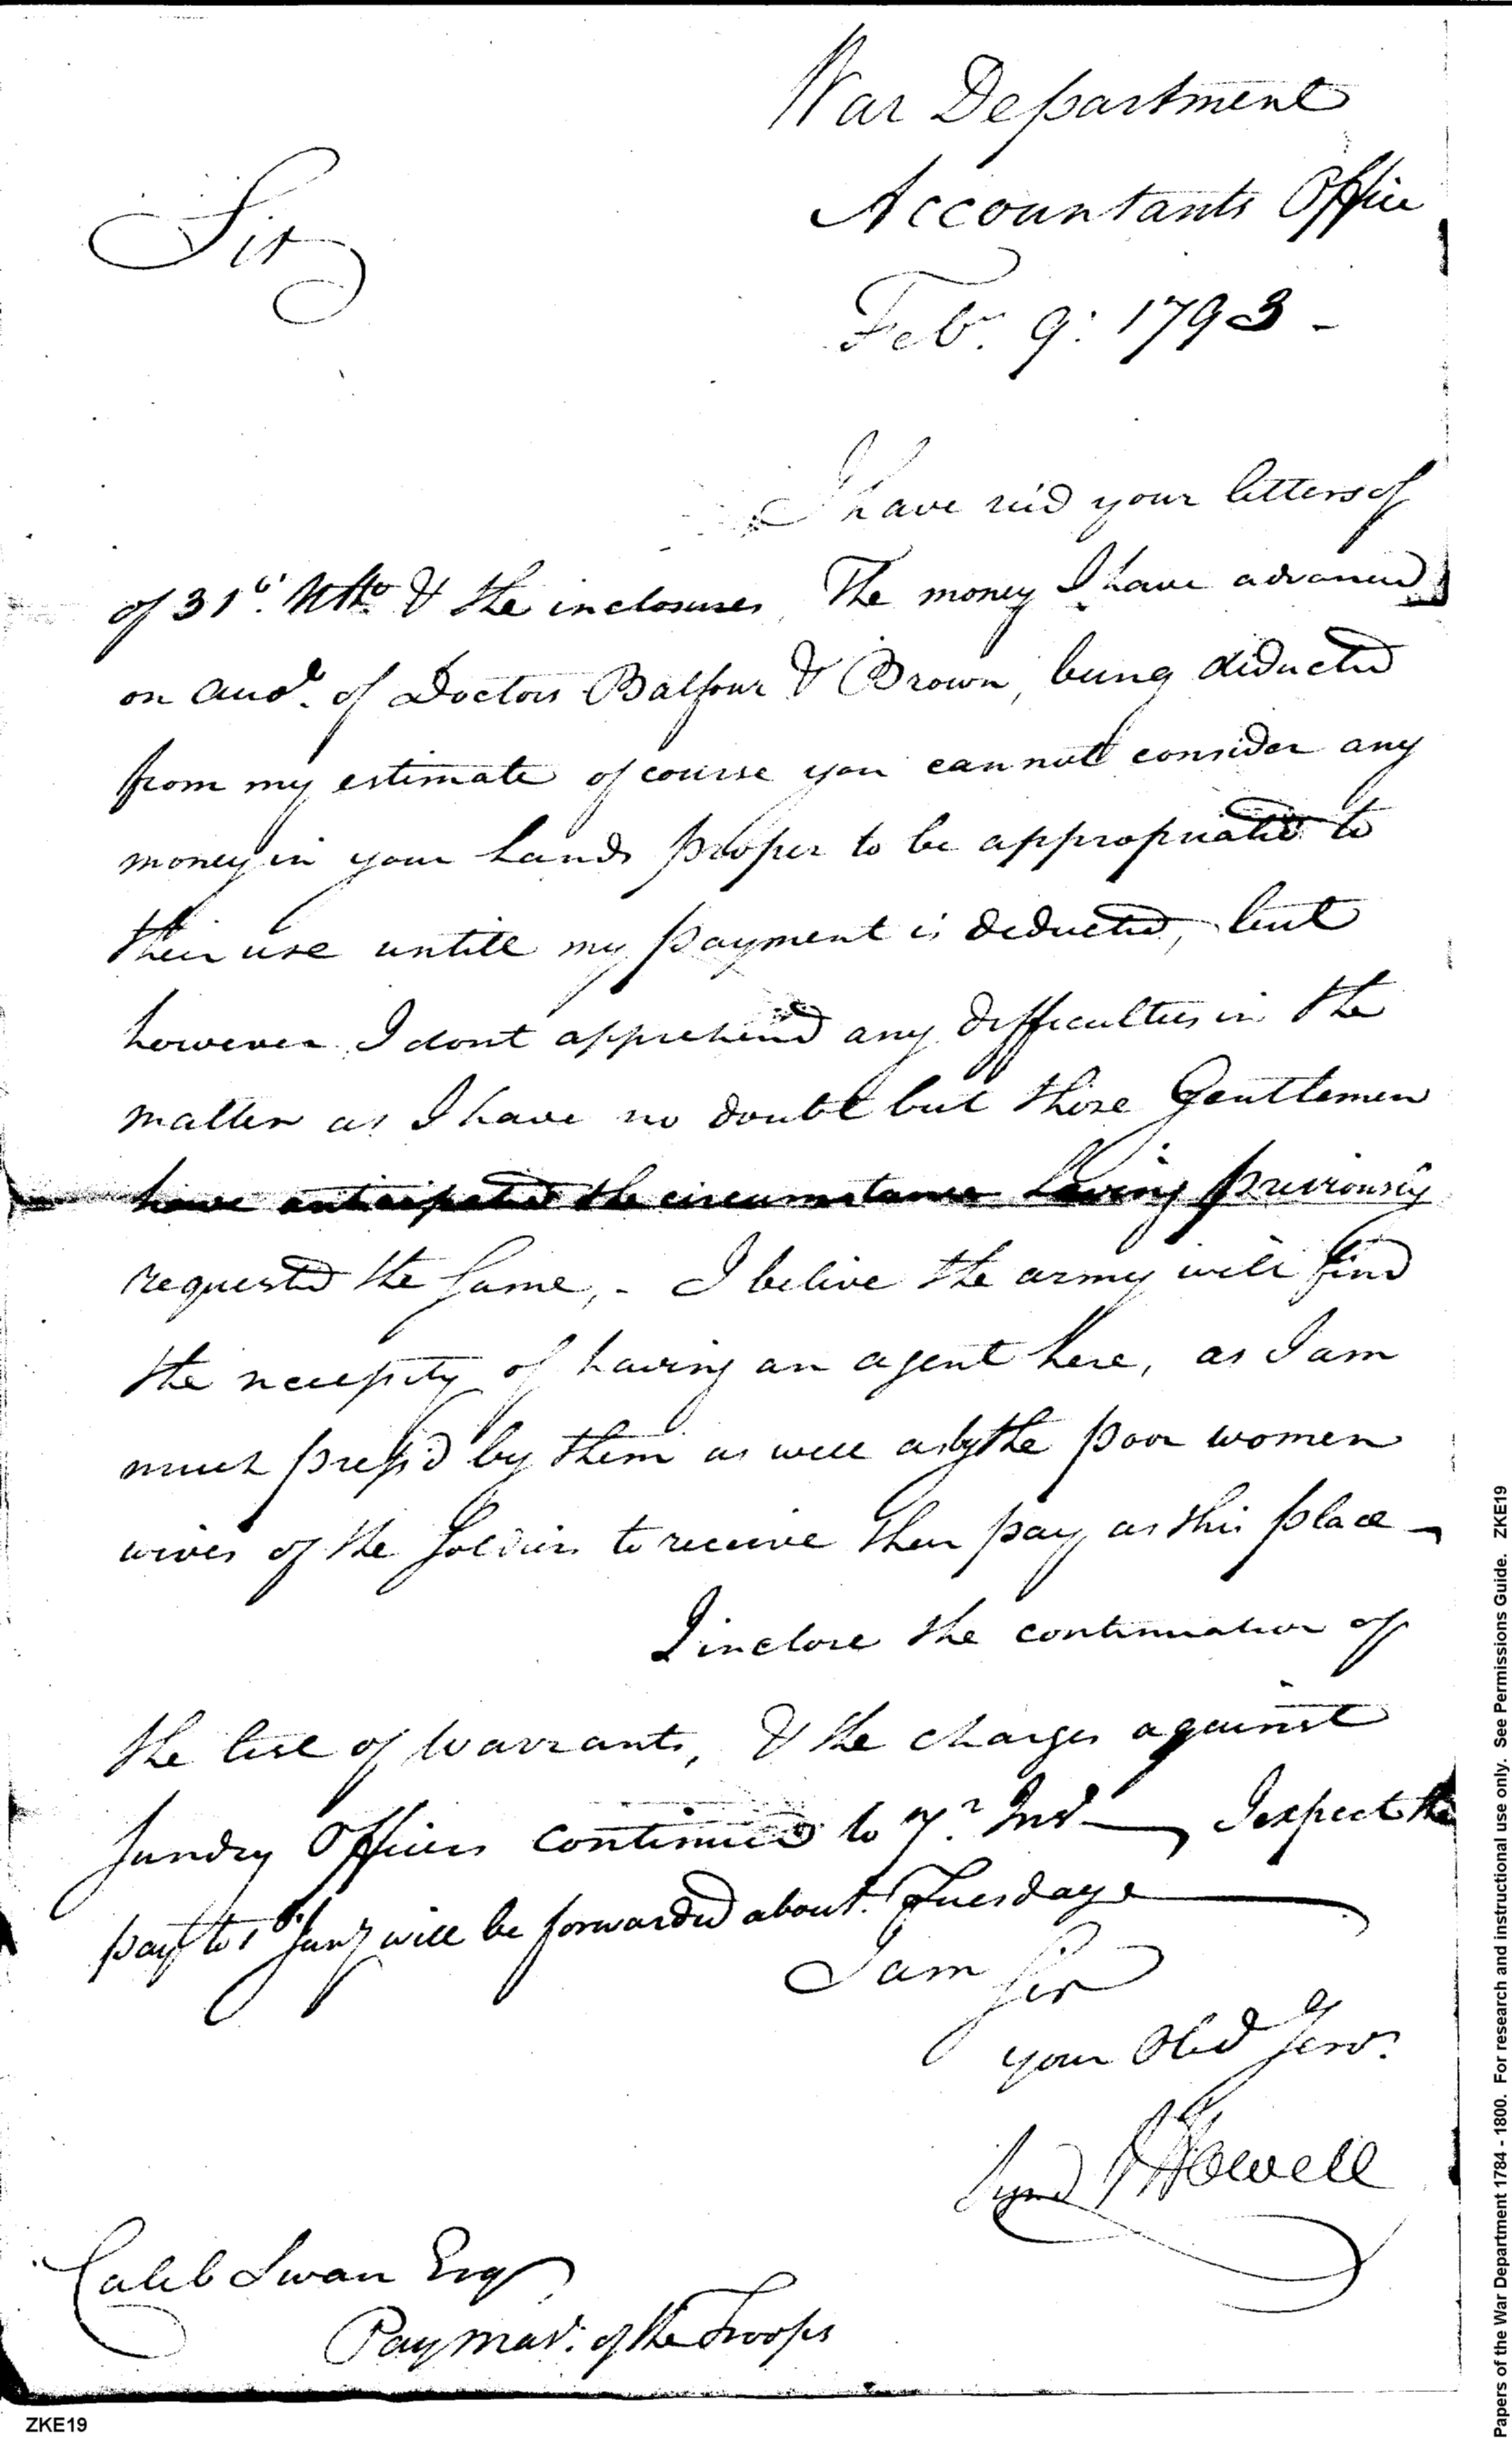 War Department
Accountants Office
Sir
Feb.r 9: 1793 -
I have rec'd your letters of
of 31st. Ulto & the inclosures, The money I have advanced
on accot. of Doctors Balfour & Brown, being deducted
from my estimate of course you cannot consider any
money in your hands proper to be appropriated to
their use untill my payment is deducted, but
however I dont apprehend any difficulties in the
matter as I have no doubt but those Gentlemen
have anticipated the circumstance having previously
requested the same, - I belive the army will find
the necessity of having an agent here, as I am
much press'd by them as well as by the poor women
wives of the Soldiers to receive their pay as this place -
I inclose the continuation of
the list of Warrants, & the charges against
sundry Officers continued to 7th. Inst — I expect the
pay to 1st Jany will be forwarded about Tuesday
I am Sir
your Obed Servt.
Signd J Howell
Caleb Swan Esqr
Paymasr. of the Troops
ZKE19
Papers of the War Department 1784 - 1800. For research and instructional use only. See Permissions Guide. ZKE19